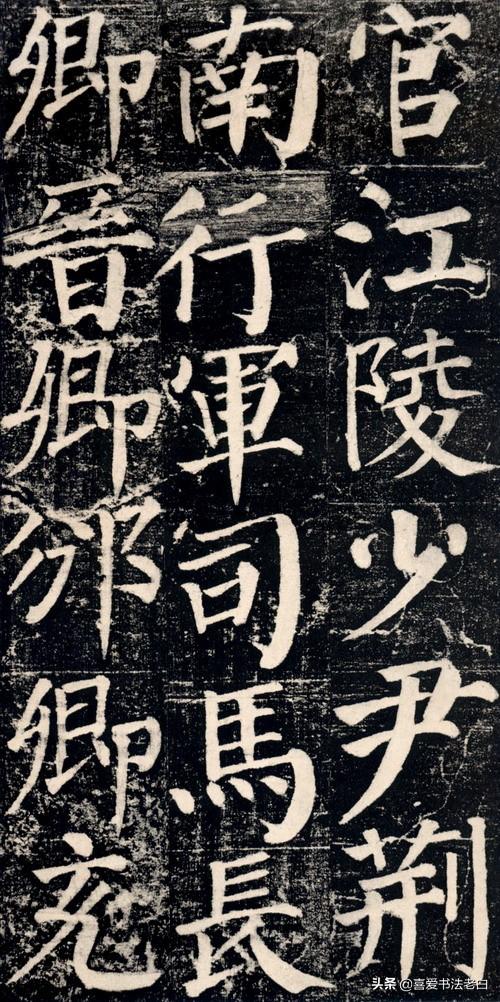 官江陵少尹荆
南行軍司馬長
卿晋卿邠卿充
头条 @喜爱书法老白